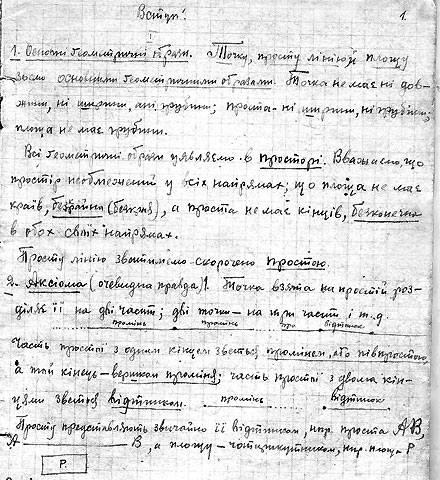 Вступ! 1.
1. Основні геометричні образи. Точку, просту лінію й площу
звемо основними геометричними образами. Точка не має ні дов-
жини, ні ширини, ані грубини; проста - ні ширини, ні грубини;
площа не має грубини.
Всі геометричні образи уявляємо в просторі. Вважаємо, що
простір необмежений у всіх напрямах; що площа не має
країв, безкрайна (безкрая), а проста не має кінців, безконечна
в обох своїх напрямах.
Просту лінію зватимемо скорочено простою.
2. Аксіома (очевидна правда) 1. Точка взята на простій роз-
діляє її на дві части; дві точки — на три части і т.д.
промінь промінь про відтинок
Часть простої з одним кінцем зветься променем, або півпростою
а той кінець - вершком проміня; часть простої з двома кін-
цями зветься відтинком. промінь відтинок
Просту представляють звичайно її відтинком, нпр. проста AB,
A B, а площу - чотирикутником, нпр. площа P
P.